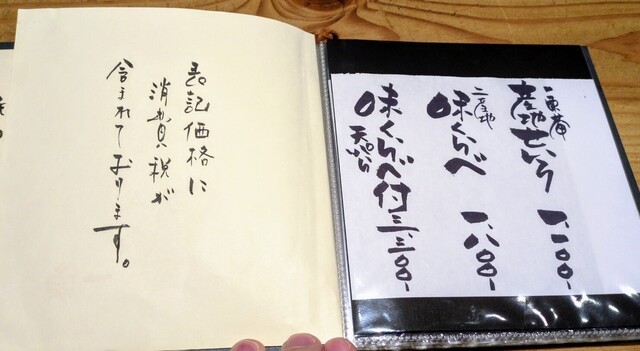 一東菴
産地せいろ 一、一〇〇-
二産地
味くらべ 一、八〇〇-
味くらべ付 三、三〇〇-
天ぷら
表記価格に
消費税が
含まれております。